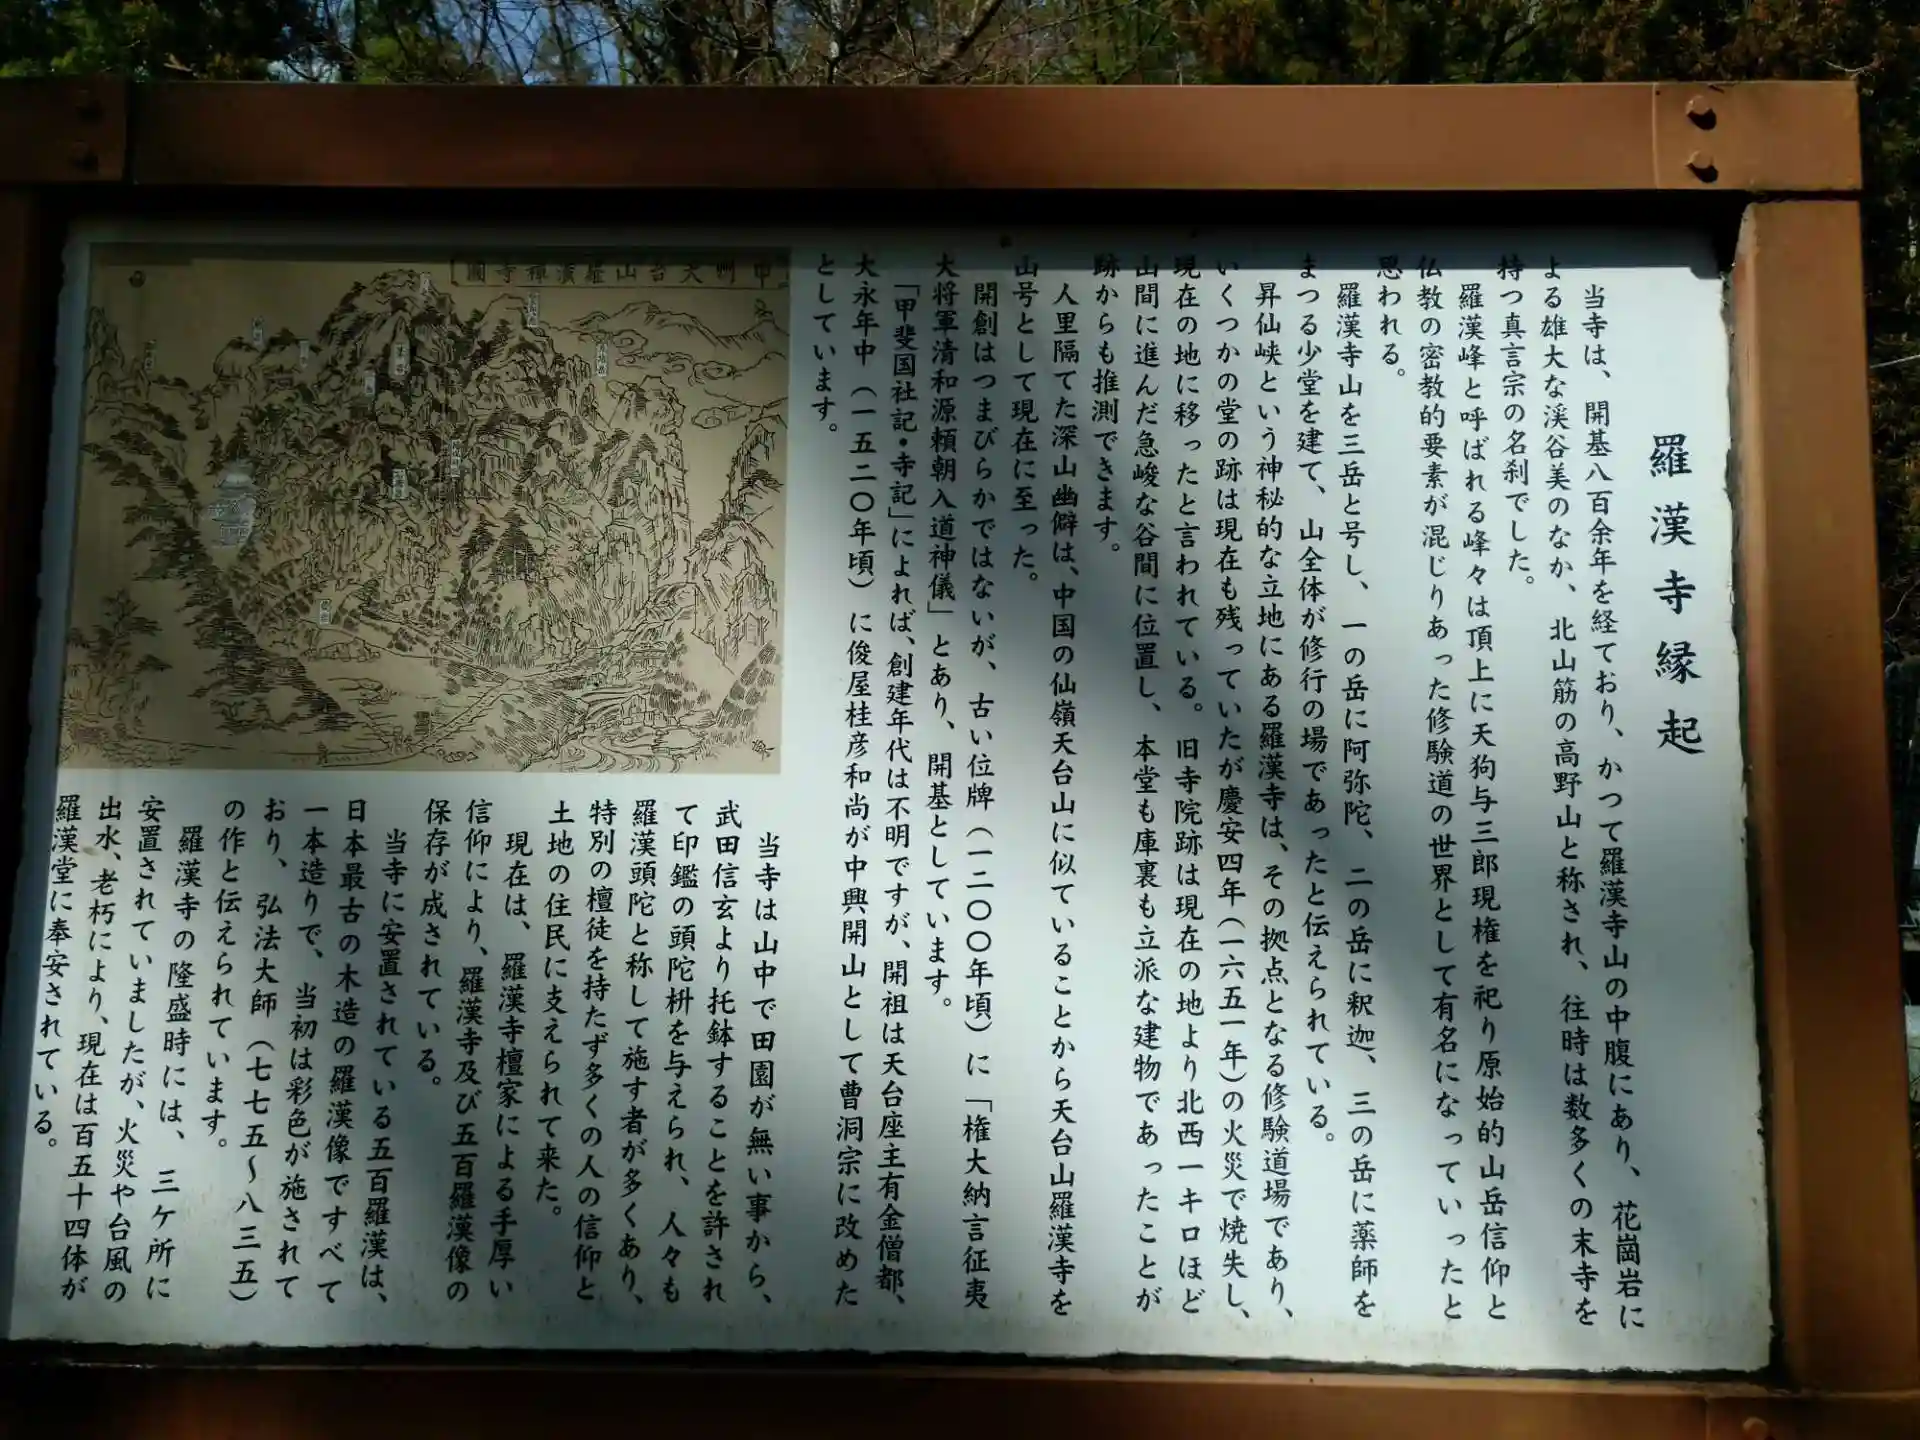 羅漢寺縁起
当寺は、開基八百余年を経ており、かつて羅漢寺山の中腹にあり、花崗岩に
よる雄大な渓谷美のなか、北山筋の高野山と称され、往時は数多くの末寺を
持つ真言宗の名刹でした。
羅漢峰と呼ばれる峰々は頂上に天狗与三郎現権を祀り原始的山岳信仰と
仏教の密教的要素が混じりあった修験道の世界として有名になっていったと
思われる。
羅漢寺山を三岳と号し、一の岳に阿弥陀、二の岳に釈迦、三の岳に薬師を
まつる少堂を建て、山全体が修行の場であったと伝えられている。
昇仙峡という神秘的な立地にある羅漢寺は、その拠点となる修験道場であり、
いくつかの堂の跡は現在も残っていたが慶安四年（一六五一年）の火災で焼失し、
現在の地に移ったと言われている。旧寺院跡は現在の地より北西一キロほど
山間に進んだ急峻な谷間に位置し、本堂も庫裏も立派な建物であったことが
跡からも推測できます。
人里隔てた深山幽僻は、中国の仙嶺天台山に似ていることから天台山羅漢寺を
山号として現在に至った。
開創はつまびらかではないが、古い位牌（一二〇〇年頃）に「権大納言征夷
大将軍清和源頼朝入道神儀」とあり、開基としています。
「甲斐国社記・寺記」によれば、創建年代は不明ですが、開祖は天台座主有金僧都、
大永年中（一五二〇年頃）に俊屋桂彦和尚が中興開山として曹洞宗に改めた
としています。
甲州天台山羅漢禅寺圖
当寺は山中で田園が無い事から、
武田信玄より托鉢することを許され
て印鑑の頭陀枡を与えられ、人々も
羅漢頭陀と称して施す者が多くあり、
特別の檀徒を持たず多くの人の信仰と
土地の住民に支えられて来た。
現在は、羅漢寺檀家による手厚い
信仰により、羅漢寺及び五百羅漢像の
保存が成されている。
当寺に安置されている五百羅漢は、
日本最古の木造の羅漢像ですべて
一本造りで、当初は彩色が施されて
おり、弘法大師（七七五～八三五）
の作と伝えられています。
羅漢寺の隆盛時には、三ケ所に
安置されていましたが、火災や台風の
出水、老朽により、現在は百五十四体が
羅漢堂に奉安されている。